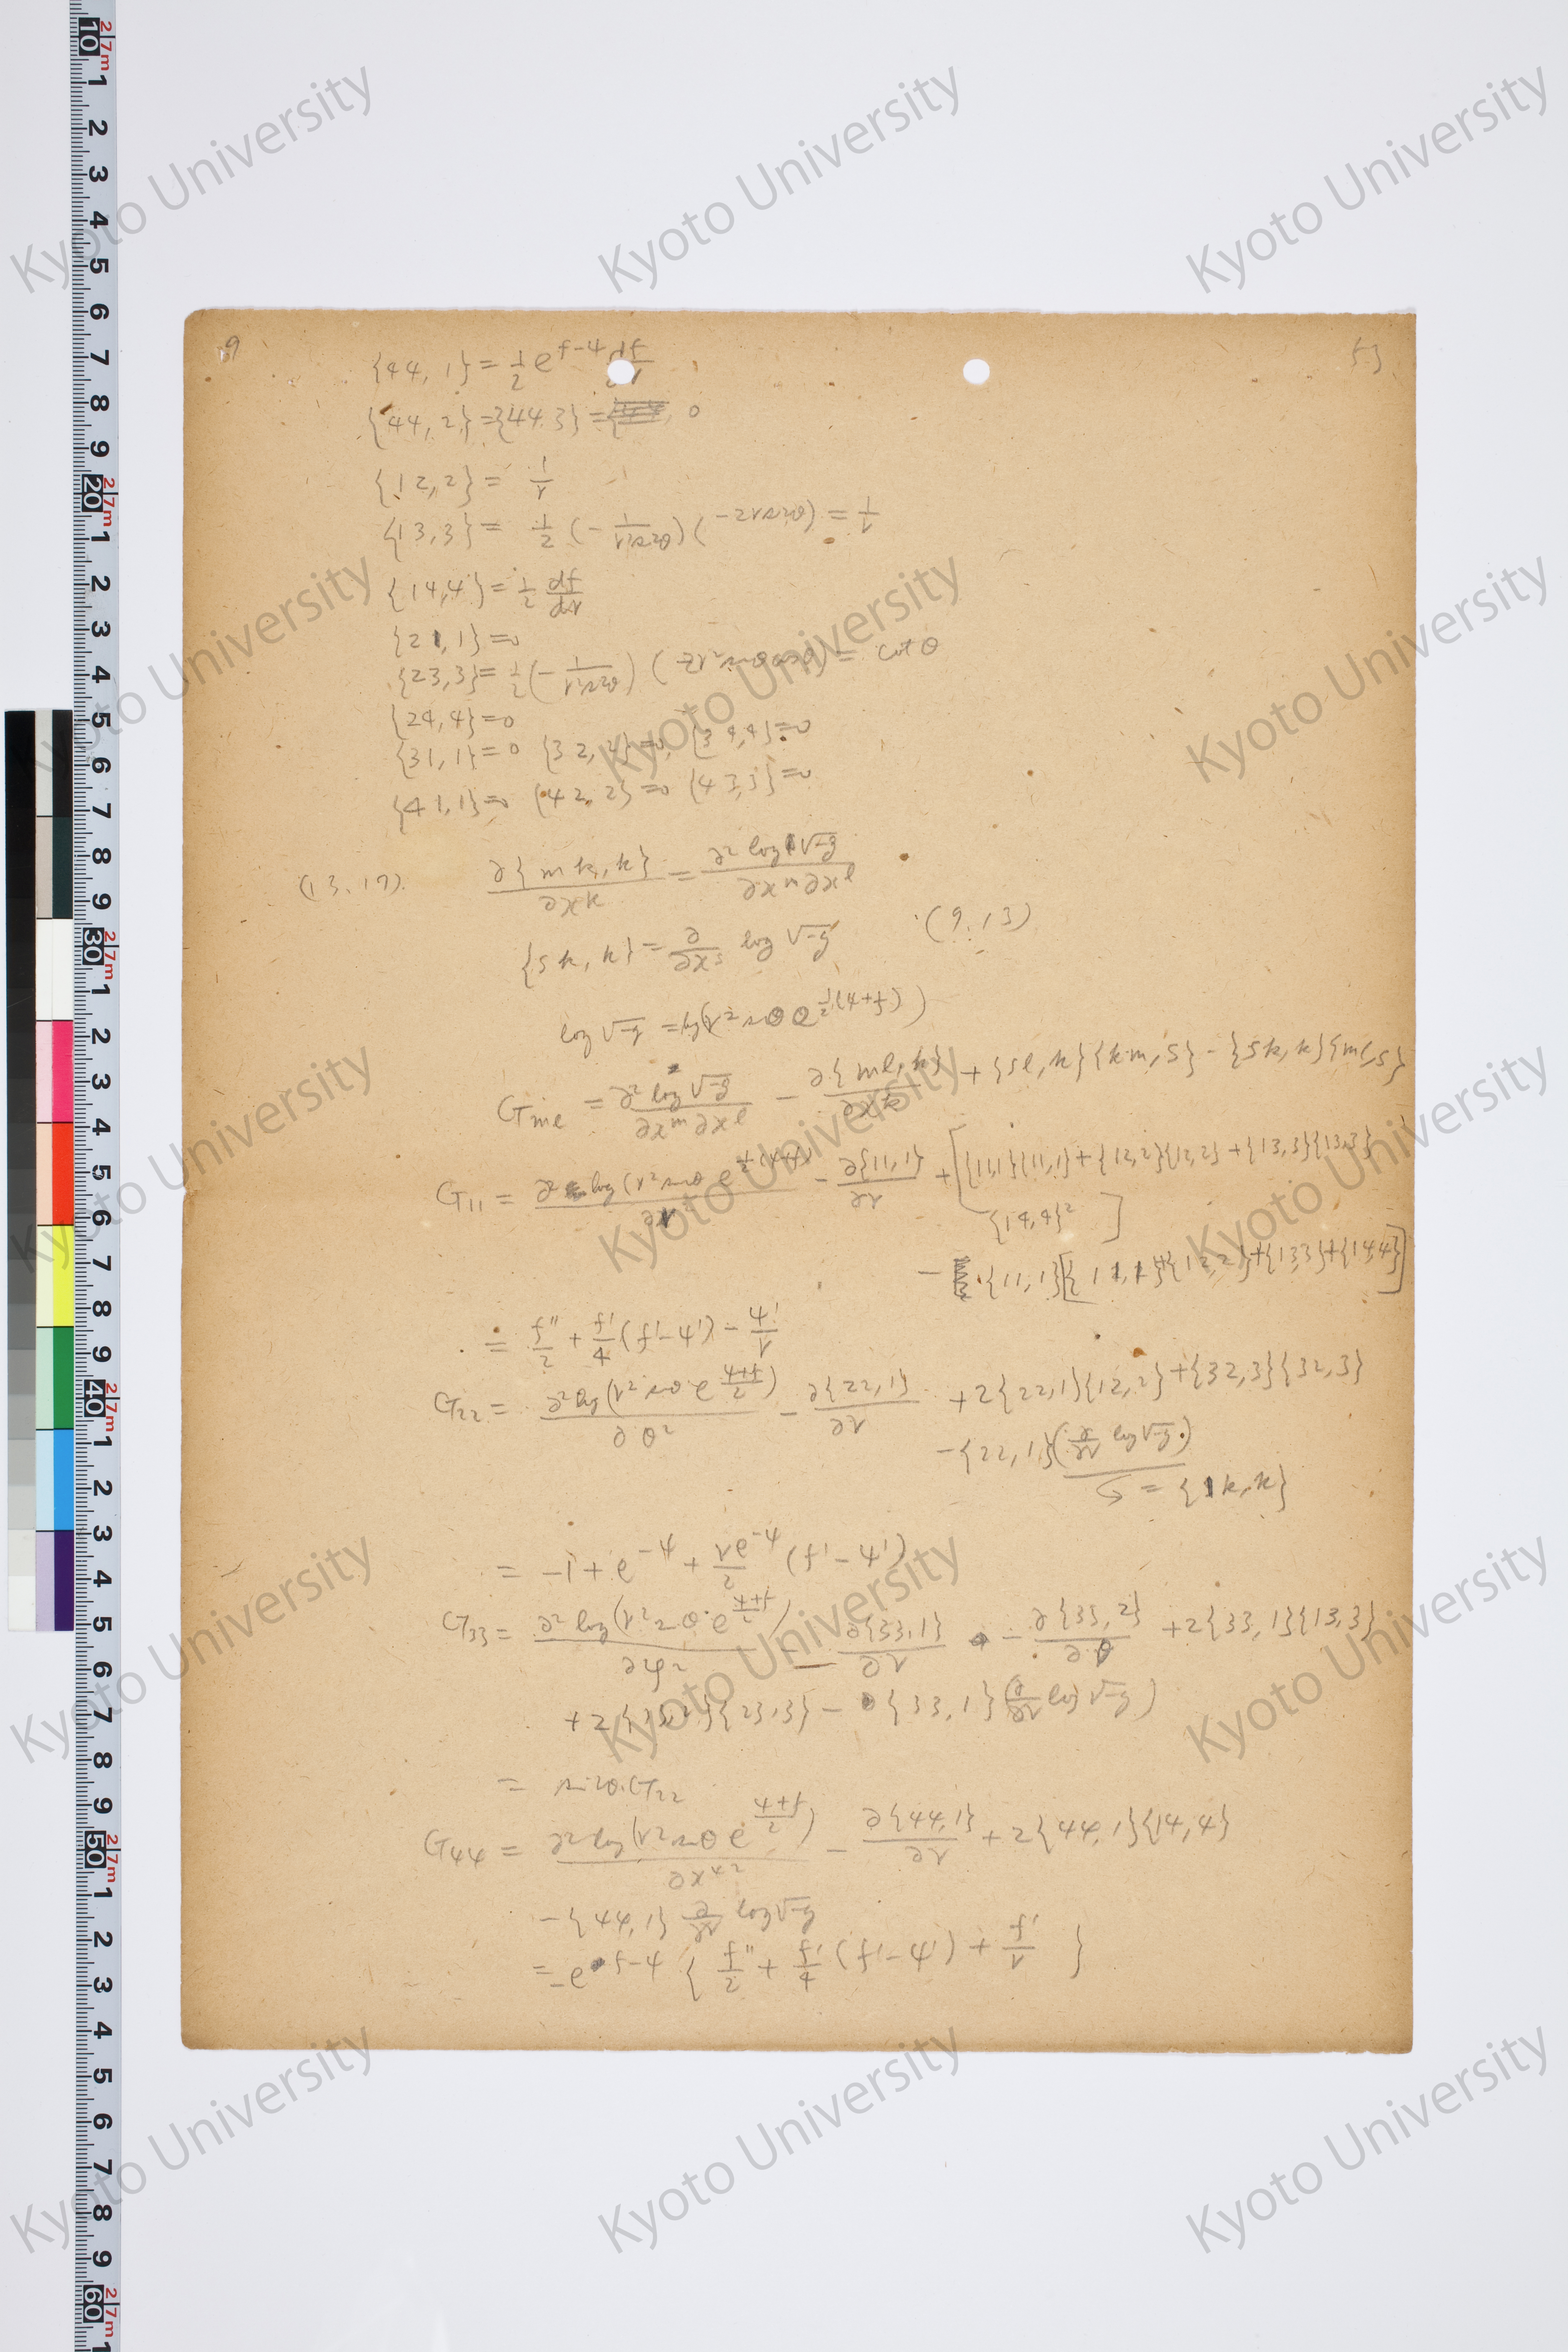 9
53
{44, 1} = 1/2 e^{f-ψ} df/dr
{44, 2} = {44 3} = 0
{12, 2} = 1/r
{13, 3} = 1/2 (- 1/r²sin²θ) (-2r sin²θ) = 1/r
{14, 4} = 1/2 df/dr
{21, 1} = 0
{23, 3} = 1/2 (- 1/r²sin²θ) ( 2r² sinθ cosθ) = cot θ
{24, 4} = 0
{31, 1} = 0 {32, 2} = 0, {34, 4} = 0
{41, 1} = 0 {42, 2} = 0 {43, 3} = 0
(13.17). ∂{mk, k}/∂x^k = ∂² log √-g / ∂x^m ∂x^l
{sk, k} = ∂/∂x^s log √-g (9.13)
log √-g = log(r² sinθ e^{1/2(ψ+f)})
G_ml = ∂² log √-g / ∂x^m ∂x^l - ∂{ml, k}/∂x^k + {sl, k}{km, s} - {sk, k}{ml, s}
G_11 = ∂² log (r² sinθ e^{1/2(ψ+f)}) / ∂r² - ∂{11, 1}/∂r + [{11,1}{11,1} + {12,2}{12,2} + {13,3}{13,3}
{14,4}² ]
- {11, 1}[{11, 1} + {12, 2} + {13, 3} + {14, 4}]
= f''/2 + f'/4 (f' - ψ') - ψ'/r
G_22 = ∂² log (r² sinθ e^{(ψ+f)/2}) / ∂θ² - ∂{22, 1}/∂r + 2{22, 1}{12, 2} + {32, 3}{32, 3}
- {22, 1}(∂/∂r log √-g)
= {1k, k}
= -1 + e^{-ψ} + re^{-ψ}/2 (f' - ψ')
G_33 = ∂² log (r² sinθ e^{(ψ+f)/2}) / ∂φ² - ∂{33, 1}/∂r - ∂{33, 2}/∂θ + 2{33, 1}{13, 3}
+ 2{33, 2}{23, 3} - {33, 1}(∂/∂r log √-g)
= sin²θ · G_22
G_44 = ∂² log (r² sinθ e^{(ψ+f)/2}) / ∂x^4² - ∂{44, 1}/∂r + 2{44, 1}{14, 4}
- {44, 1} ∂/∂r log √-g
= -e^{f-ψ} { f''/2 + f'/4 (f' - ψ') + f'/r }